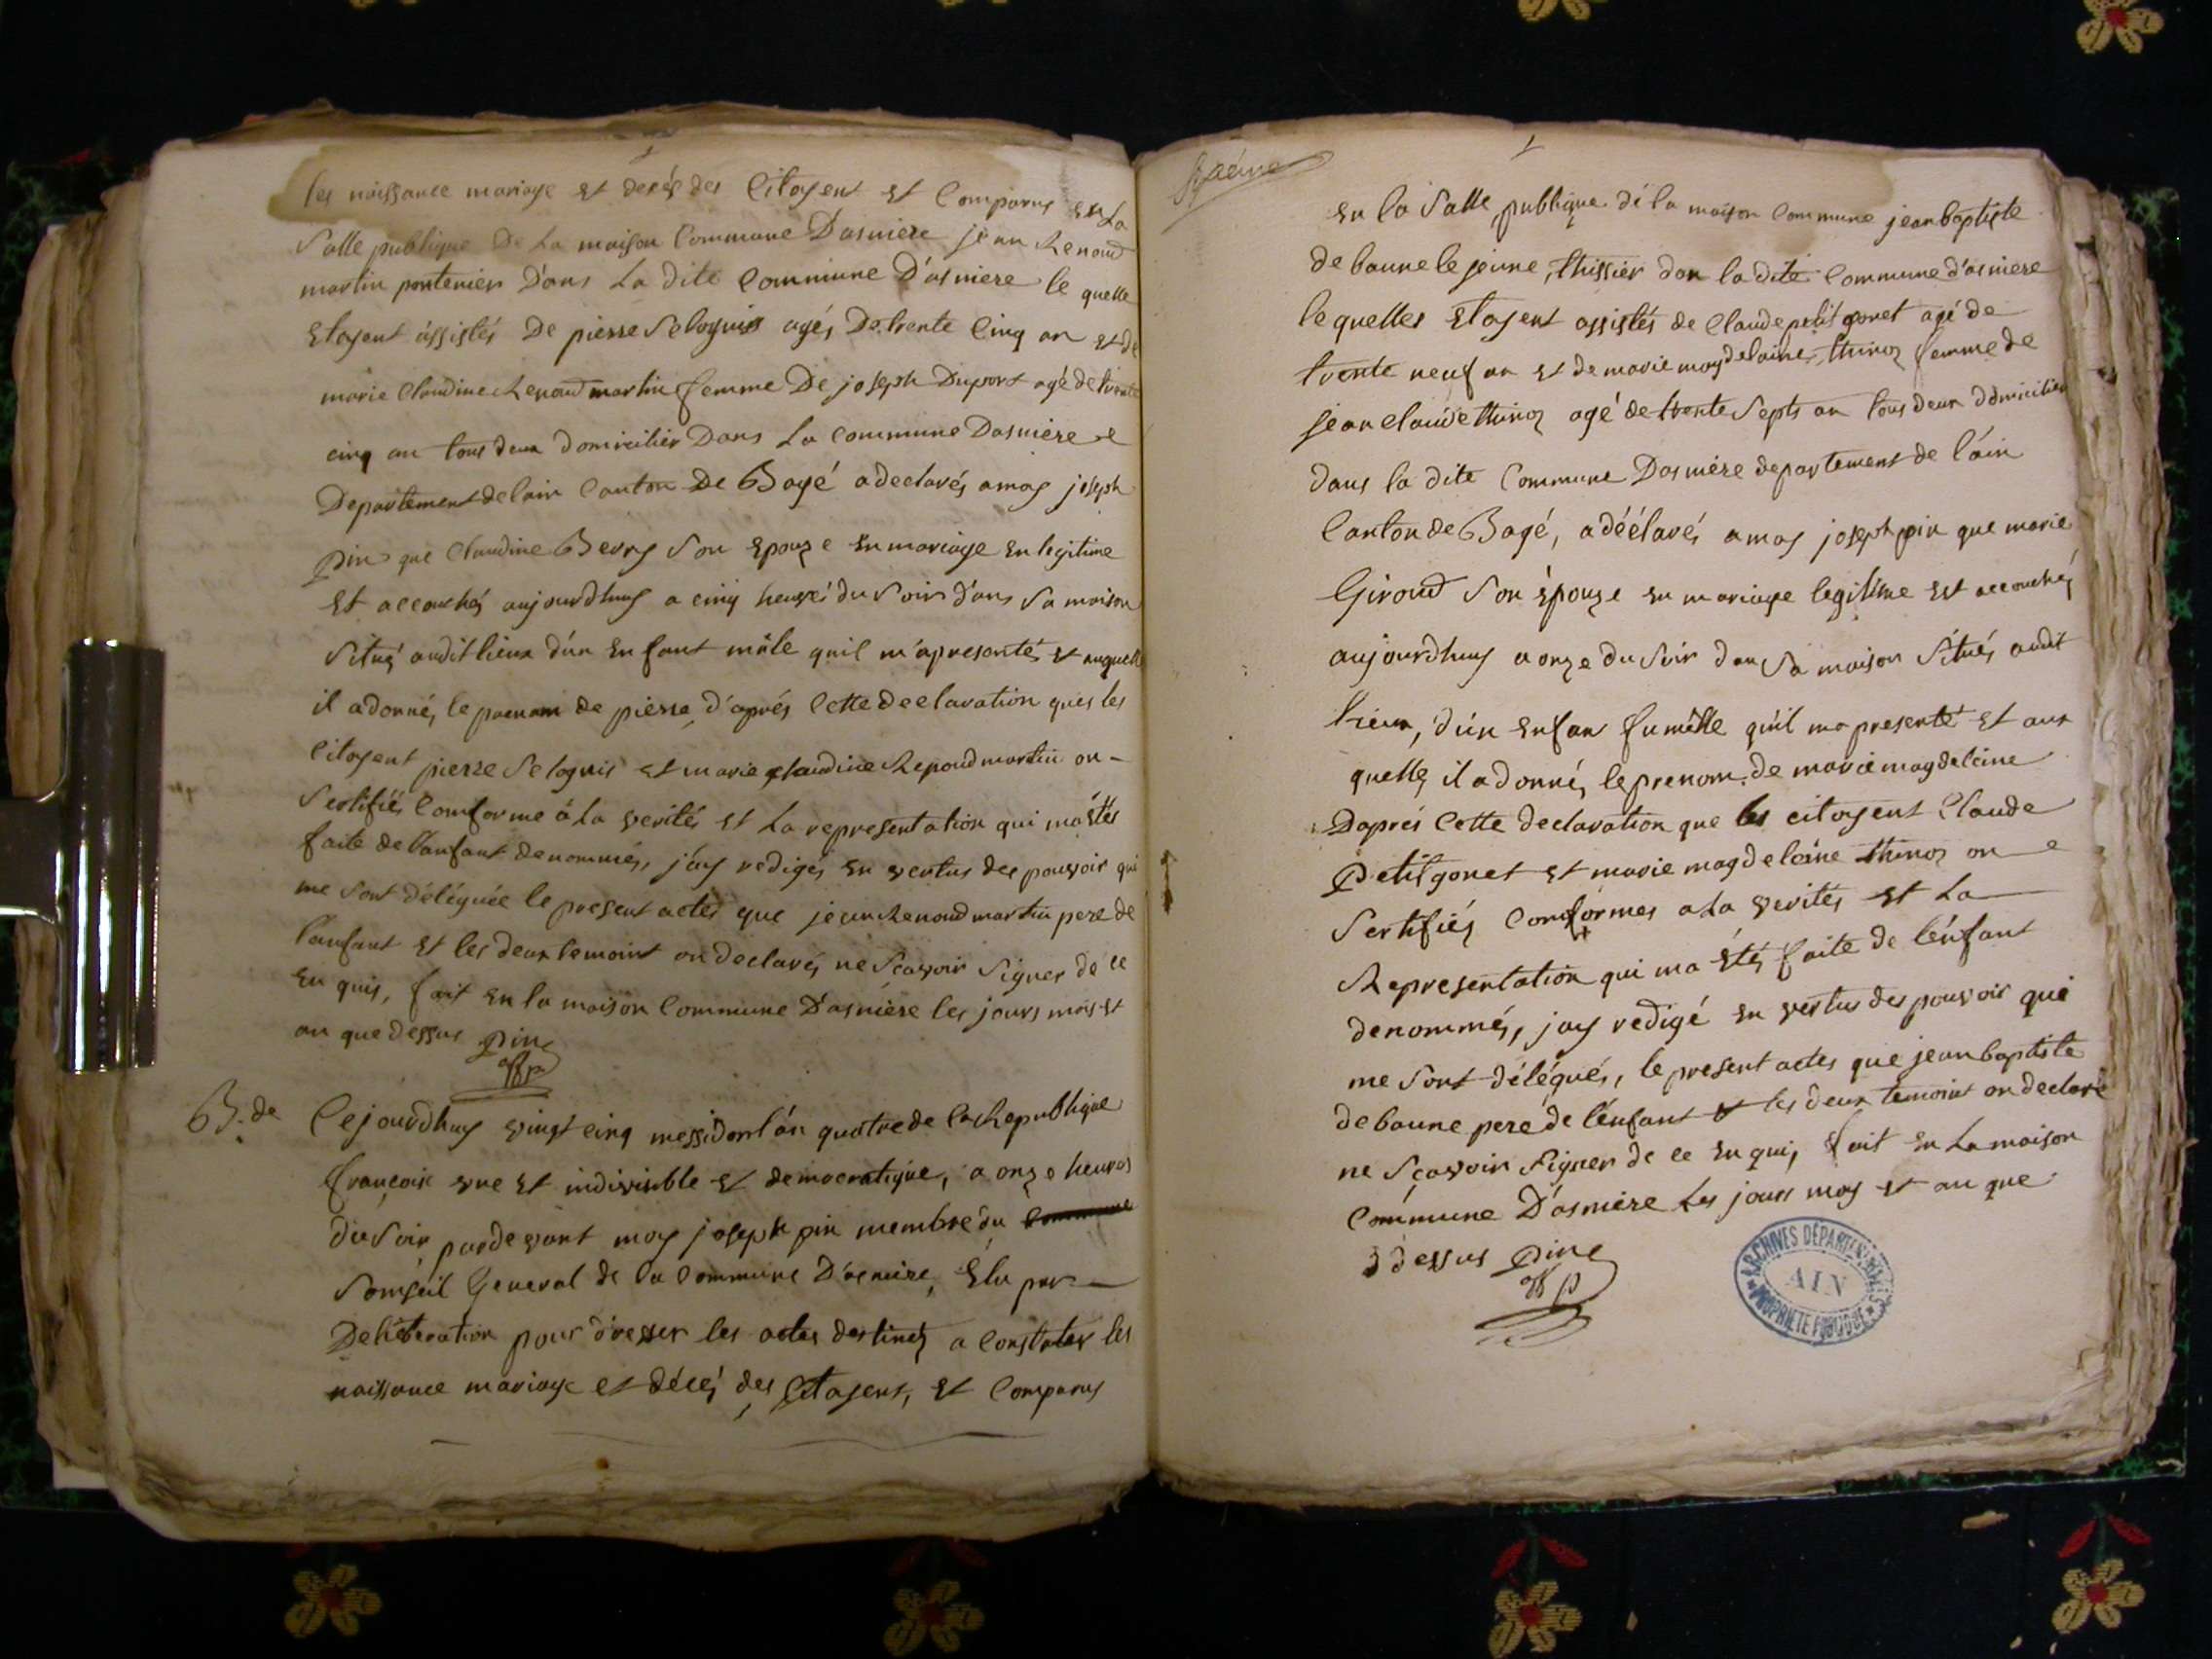 les naissance mariage et decés des Citoyent et Comparus en La
Salle publique De La maison Commune Dasniere jean Renoud
martin pontenier D'ans La dite Commune D'asniere le quelle
Etoyent assistés De pierre Seloguis agés De trente Cinq an et de
marie Claudine Renoud martin femme De joseph Duport agé de trente
cinq an tous deux domicilier Dans La Commune Dasniere
Departement de lain Canton De Bagé a declarés a moy joseph
pin que Claudine Bevry Son Epouze en mariage en legitime
Et accouchés aujourdhuy a cinq heures du Soir d'ans Sa maison
Situé audit lieux d'un Enfant mâle quil m'a presentés et auquelle
il a donnés le prenom de pierre d'aprés Cette declaration ques les
Citoyent pierre Seloguis et marie Claudine Renoud martin on
Sertifiés Comforme â La verités et La representation qui ma étés
faite de l'anfant denommés, j'ay redigés en vertus des pouvoir qui
me Sont déléguée le present actes que jean Renoud martin pere de
l'anfant et les deux temoint on declarés ne Scavoir Signer de ce
en quis, fait en la maison Commune D'asniere les jours mois et
an que dessus pin
B. de
Cejourdhuy vingt cinq messidor l'an quatre de la Republique
francoise une et indivisible et democratique, a onze heures
du Soir pardevant moy joseph pin membre du Commune
Conseil General de la Commune D'asniere, Elu par
Deliberation pour dresser les actes destinés a Constater les
naissance mariage et décés des Citoyent, et Comparus
en la Salle publique de la maison Commune jean baptiste
de baune le jeune, thissier dan la dite Commune d'asniere
le quelles Etoyent assistés de Claude petit gonet agé de
trente neuf an et de marie magdelaine thinoz femme de
jean claude thinoz agé de trente Septs an tous deux domicilier
dans la dite Commune Dasniere departement de l'ain
Canton de Bagé, a déélarés a moy joseph pin que marie
Giroud Son épouze en mariage legitime est accouchés
aujourdhuy a onze du Soir dan Sa maison Situés audit
lieux, d'un enfan fumelle qu'il ma presenté et aux
quelles il a donnés le prenom de marie magdeleine
Daprés Cette declaration que les citoyent Claude
Petitgonet et marie magdeleine thinoz on
Sertifiés Conformes a La verités et La
Representation qui ma étés faite de l'énfant
denommés, jay redigé en vertus des pouvoir qui
me Sont délégués, le present actes que jean baptiste
de baune pere de l'enfant et les deux temoint on declaré
ne Sçavoir Signer de ce en qui, fait en La maison
Commune D'asniere Les jours moy et an que
dessus pin
ARCHIVES DÉPARTEMENTALES
AIN
PROPRIÉTÉ PUBLIQUE